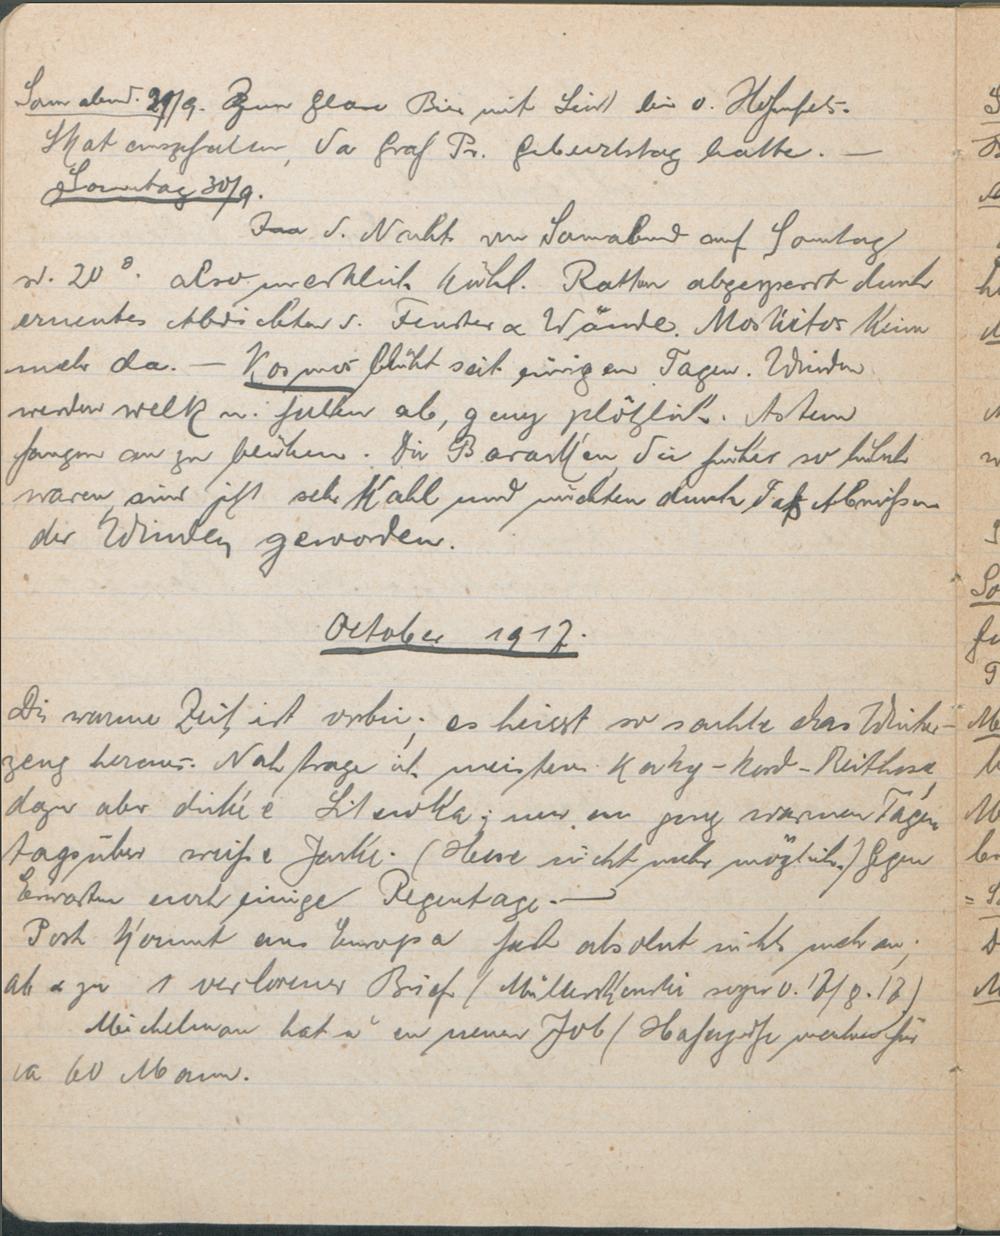 Sonnabend. 29/9. Zum Glase Bier mit Lindt bei v. Hohnfels.
Skat ausgefallen, da Graf Pr. Geburtstag hatte. —
Sonntag 30/9.
In d. Nacht von Sonnabend auf Sonntag
20°. also merklich kühl. Ratten abgesperrt durch
erneutes Abdichten d. Fenster & Wände. Moskitos keine
mehr da. — Kosmos blüht seit einigen Tagen. Winden
werden welk u. fallen ab, ganz plötzlich. Astern
fangen an zu blühen. Die Baracken, die früher so hübsch
waren, sind jetzt sehr kahl und nüchtern durch das Abreißen
der Winden geworden.
October 1917.
Die warme Zeit ist vorbei; es heisst so sachte das Winter-
zeug heraus. Noch trage ich meistens Kaky-Kord-Reithose,
dazu aber dicke Litewka; nur an ganz warmen Tagen
tagsüber weiße Jacke. (Heuer nicht mehr möglich.) Gegen
Erwarten noch einige Regentage. —
Post kommt aus Europa fast absolut nichts mehr an;
ab & zu 1 verlorener Brief (Müllerskowski sogar v. 17/8.17)
Michelmann hat a en neuen Job (Hafergrütze machen für
ca 60 Mann.